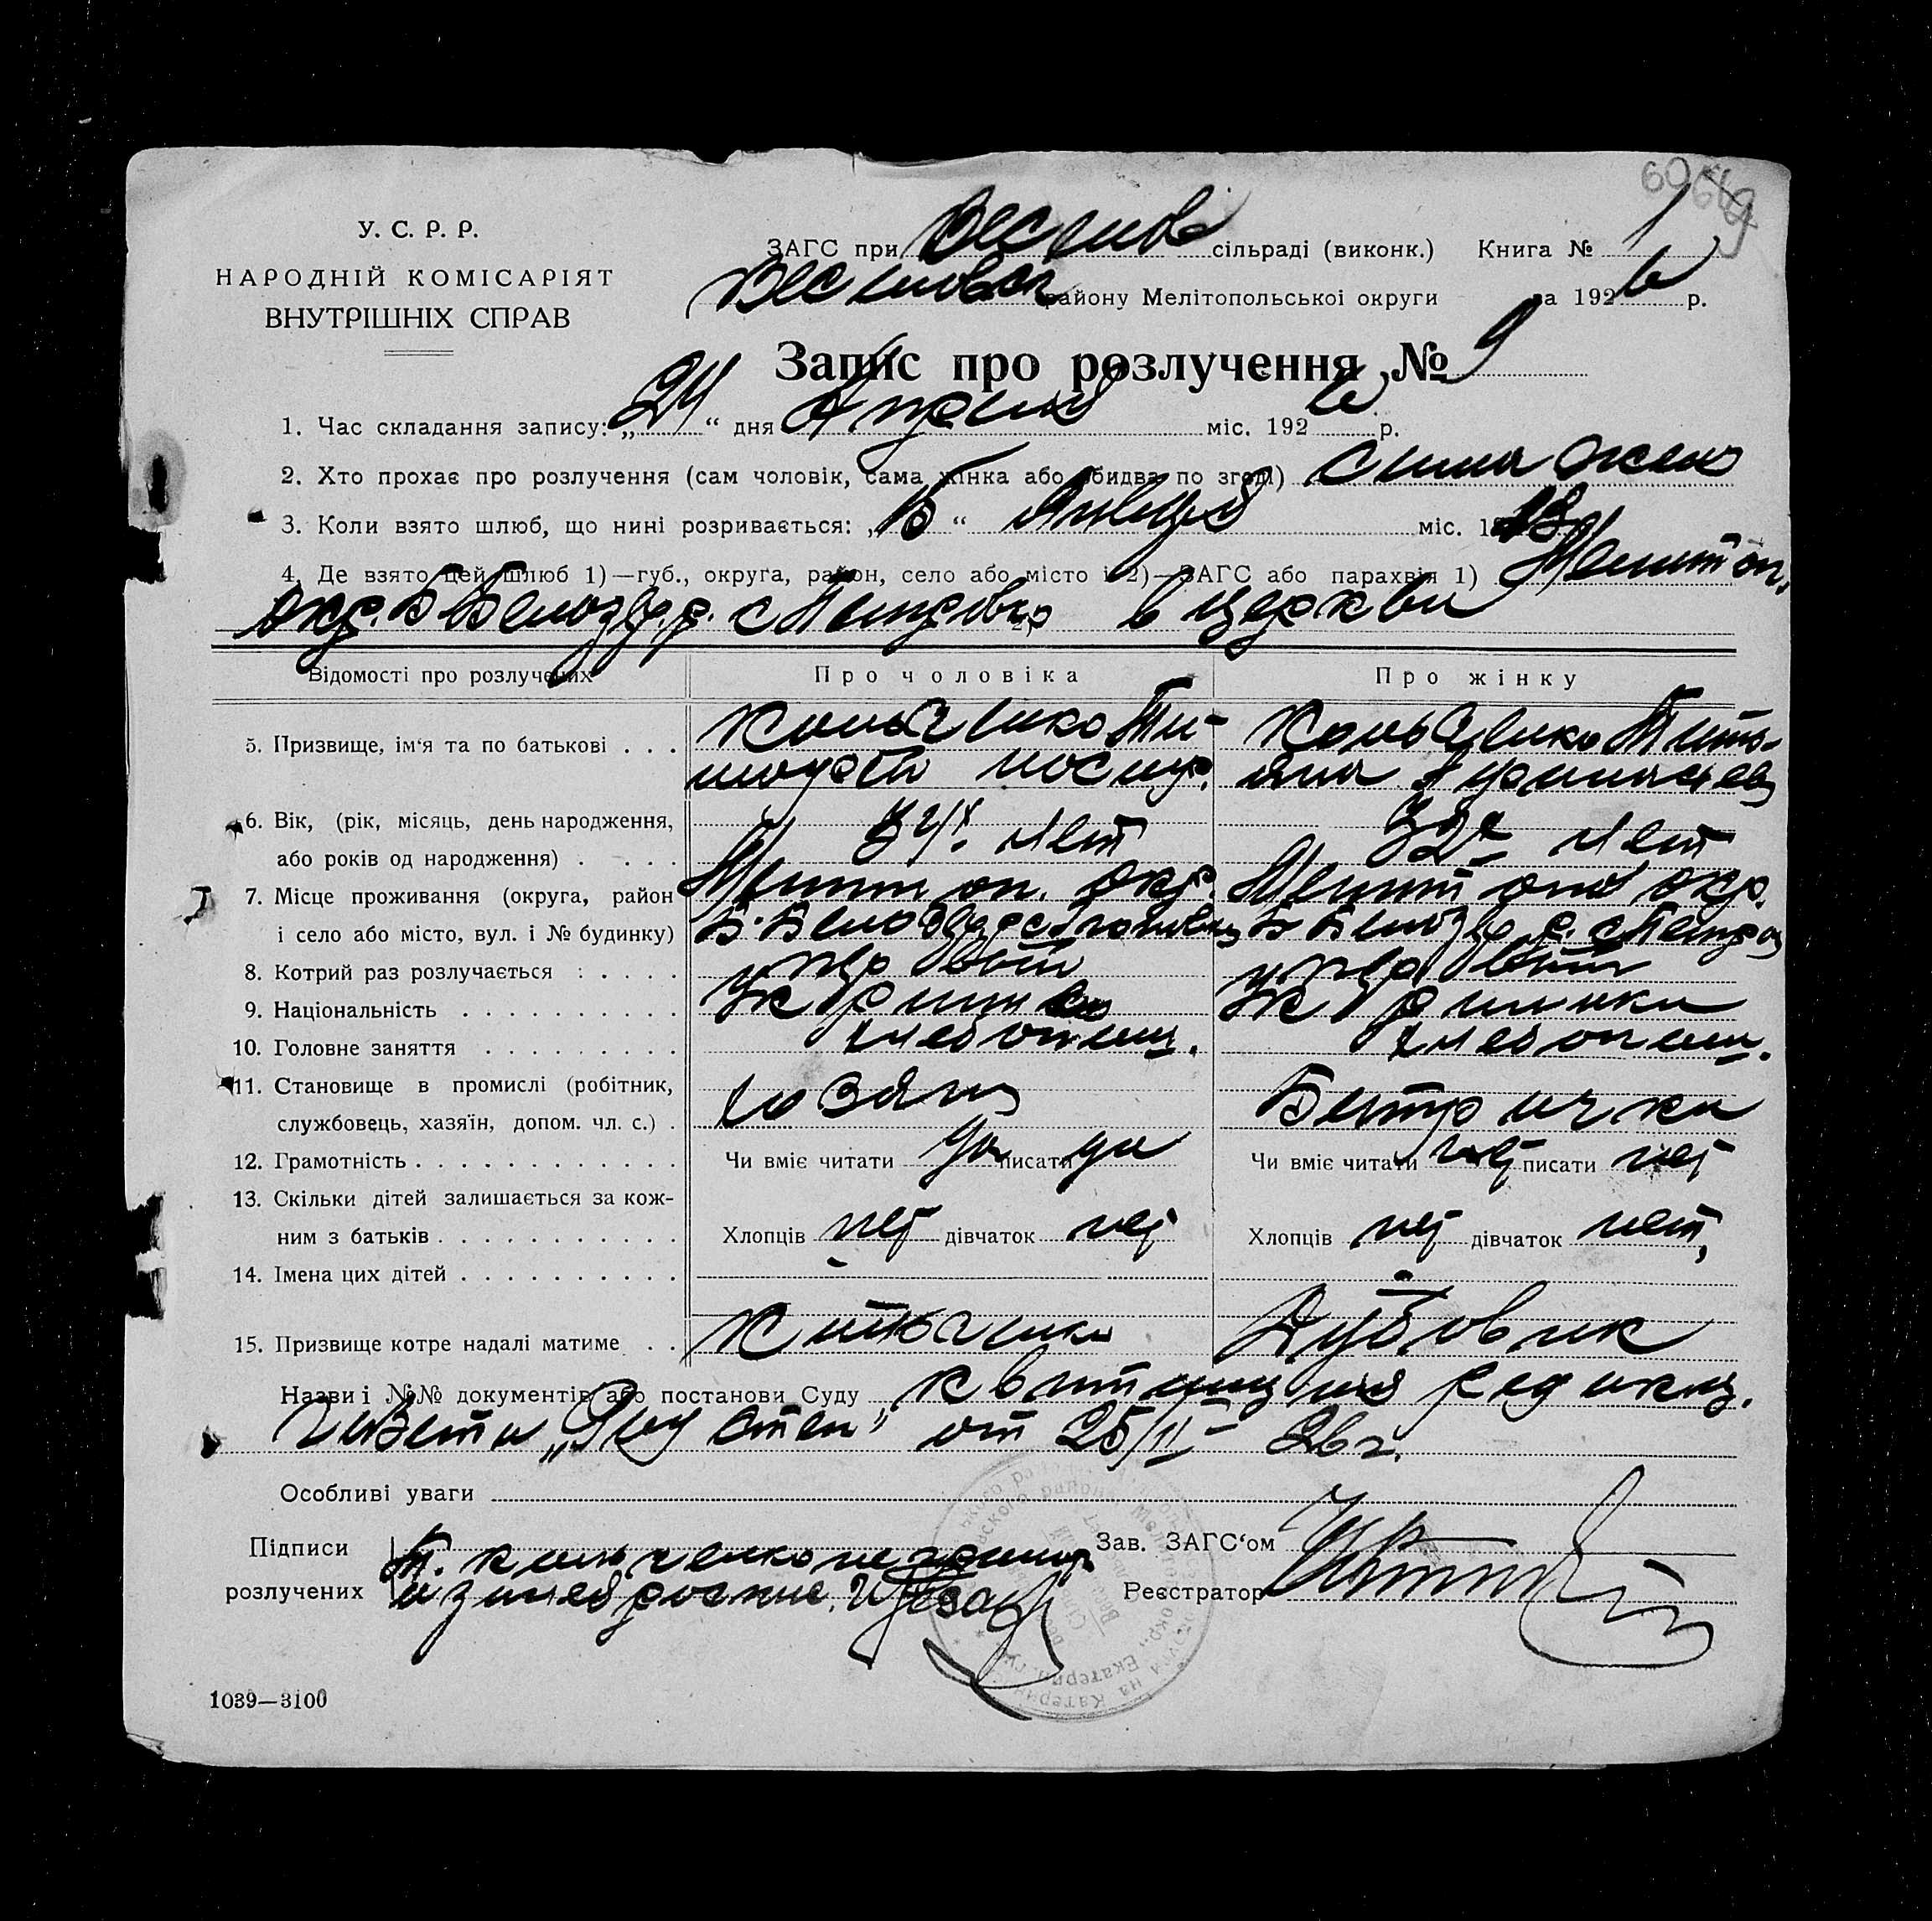 69
У. С. Р. Р.
НАРОДНІЙ КОМІСАРІЯТ
ВНУТРІШНІХ СПРАВ
ЗАГС при сільраді (виконк.) Книга № 1
району Мелітопольської округи за 1926 р.
Запис про розлучення № 9
1. Час складання запису: „24“ дня Апреля міс. 1926 р.
2. Хто прохає про розлучення (сам чоловік, сама жінка або обидва по згоді) сама жена
3. Коли взято шлюб, що нині розривається: „ “ Января міс. 1
4. Де взято цей шлюб 1)—губ., округа, район, село або місто і 2)—ЗАГС або парахвія 1) Мелитоп.
окр. Б Белозер. р. с Петровка в церкви
Відомості про розлучених
Про чоловіка
Про жінку
5. Призвище, ім‘я та по батькові . . . Кольченко Ти- Кольченко Тать-
мофей яна
6. Вік, (рік, місяць, день народження,
або років од народження) . . . . лет 32х лет
7. Місце проживання (округа, район Мелитоп. окр. Мелитоп окр.
і село або місто, вул. і № будинку) Б. Белозер Б Белозер р. с Петров
8. Котрий раз розлучається : . . . . у первый у первый
9. Національність . . . . . . . . . . Украинец Украинка
10. Головне заняття . . . . . . . . . хлебопаш. хлебопаш.
11. Становище в промислі (робітник,
службовець, хазяїн, допом. чл. с.) . хозяин Батрачка
12. Грамотність . . . . . . . . . . . . Чи вміє читати да писати да Чи вміє читати нет писати нет
13. Скільки дітей залишається за кож-
ним з батьків . . . . . . . . . . . Хлопців нет дівчаток нет Хлопців нет дівчаток нет,
14. Імена цих дітей . . . . . . . . . .
15. Призвище котре надалі матиме . . Кольченко Дубовик
Назви і №№ документів або постанови Суду квитанция редакц.
газети от 25/II- 26 г.
Особливі уваги
Підписи Т. Кольченко неграмот. Зав. ЗАГС‘ом
розлучених Реєстратор
1039—3100